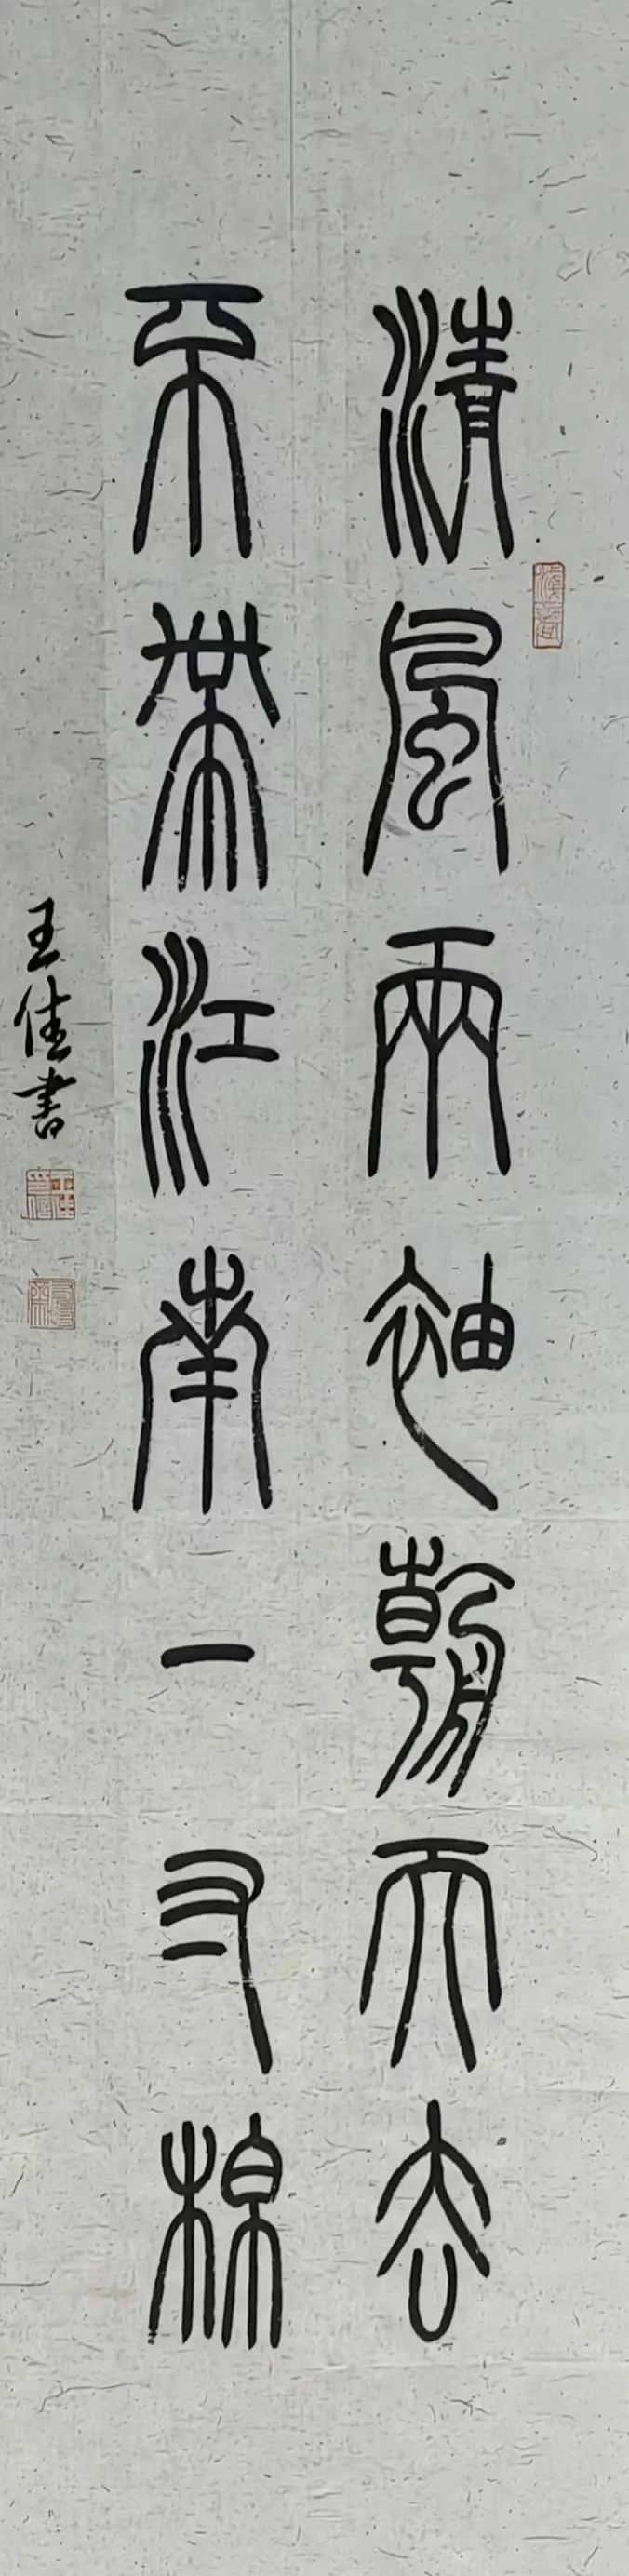 清風兩袖朝天去
不帶江南一寸棉
王佳書